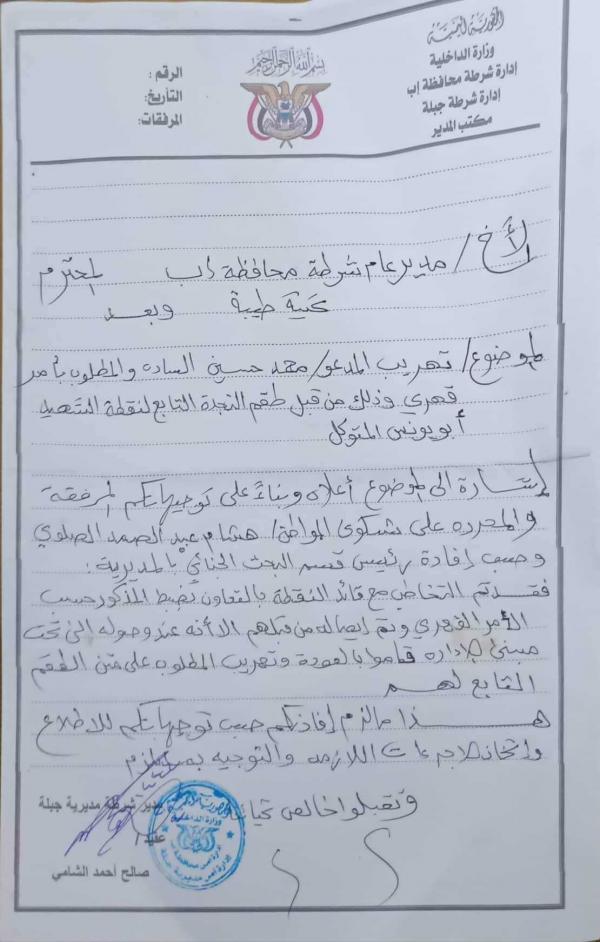 الجمهورية اليمنية
وزارة الداخلية
إدارة شرطة محافظة إب
إدارة شرطة جبلة
مكتب المدير
بسم الله الرحمن الرحيم
الرقم :
التأريخ:
المرفقات:
الأخ / مدير عام شرطة محافظة إب المحترم
تحية طيبة وبعد
الموضوع / تهريب المدعو / محمد حسين الساده والمطلوب بأمر
قهري وذلك من قبل طقم النجدة التابع لنقطة الشهيد
أبو يونس المتوكل
إشارة الى الموضوع أعلاه وبناءً على توجيهاتكم المرفقة
والمحرره على شكوى المواطن / هشام عبد الصمد الصلوي
وحسب إفادة رئيس قسم البحث الجنائي بالمديرية :
فقد تم التخاطب مع قائد النقطة بالتعاون بضبط المذكور حسب
الأمر القهري وتم إيصاله من قبلهم الأ أنه عند وصوله الى تحت
مبنى الإداره قاموا بالعودة وتهريب المطلوب على متن الطقم
التابع لهم
هذا ما لزم إفادتكم حسب توجيهاتكم للاطلاع
واتخاذ الاجراءات اللازمه والتوجيه بما يلزم
وتقبلوا خالص تحياتنا
مدير شرطة مديرية جبلة
عقيد /
صالح أحمد الشامي
وزارة الداخلية